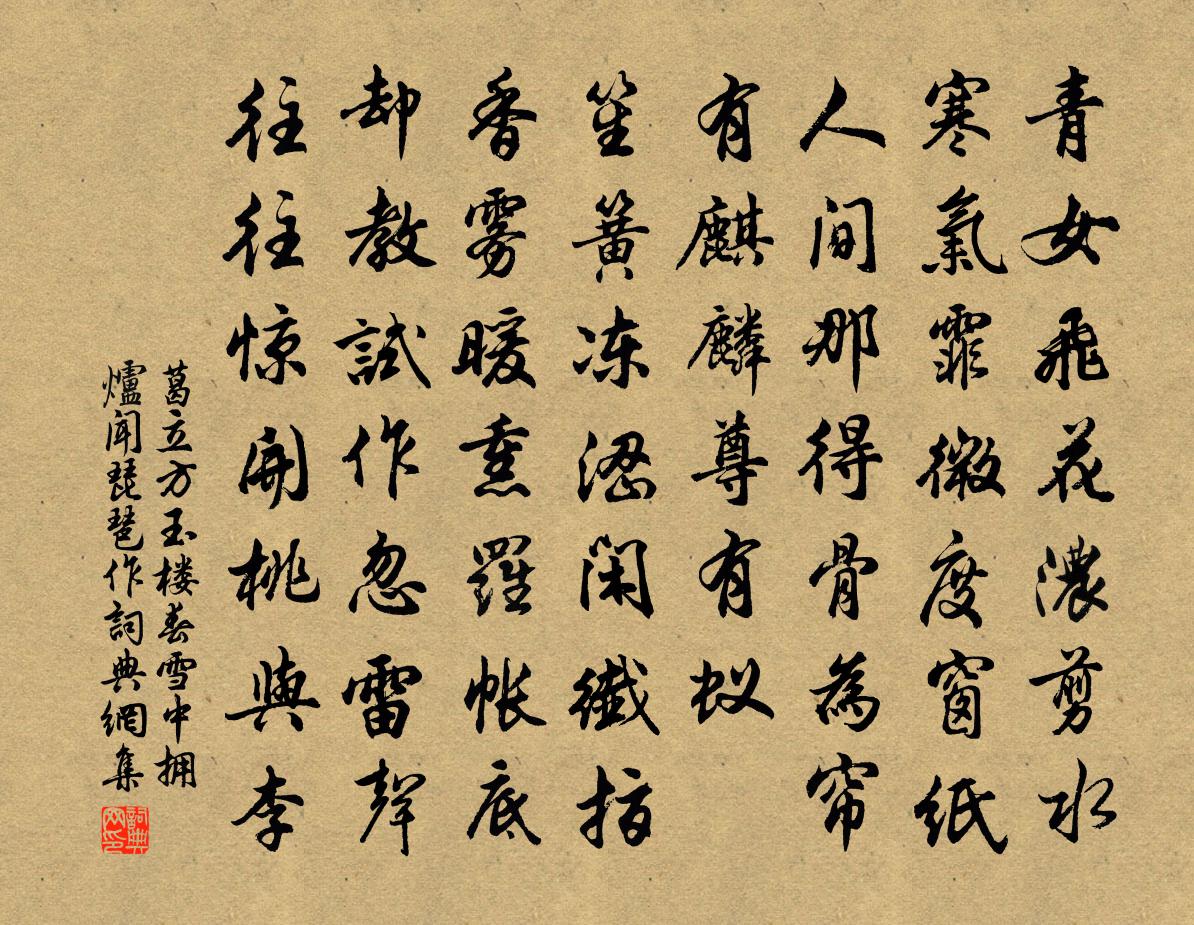 青女飛花濃剪水
寒氣霏微度窗紙
人間那得骨為帘
有麒麟尊有蚁
笙簧冻澀闲纖指
香雾暖熏羅帐底
却教試作忽雷聲
往往惊開桃與李
葛立方玉楼春雪中拥
爐闻琵琶作詞典網集
詞典
网印